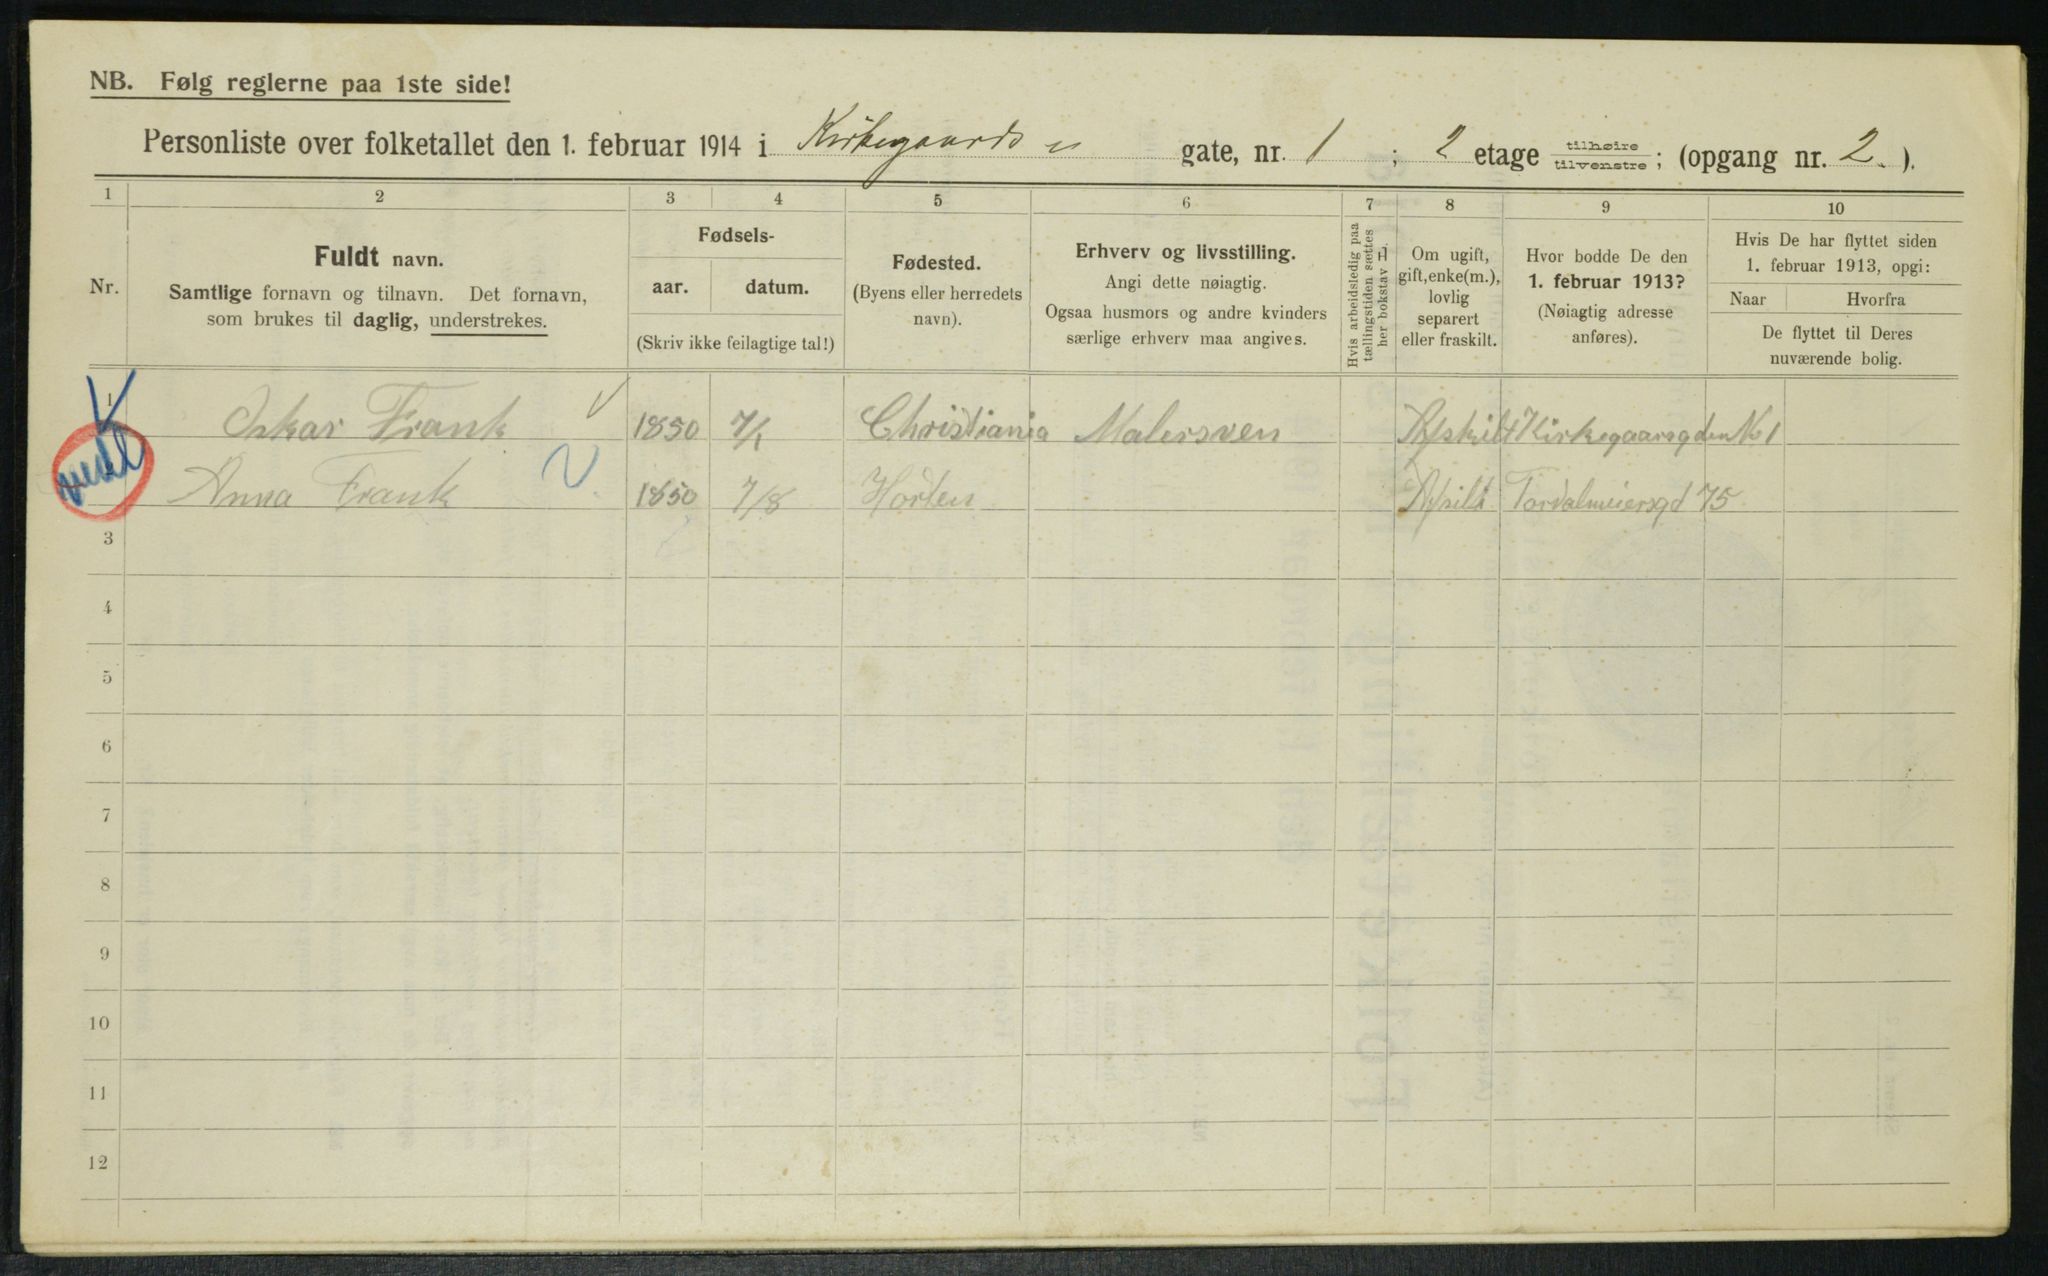 NB. Følg reglerne paa 1ste side!
Personliste over folketallet den 1. februar 1914 i Kirkegaards gate, nr. 1 ; 2 etage tilhøire tilvenstre ; (opgang nr. 2. ).
1 2 3 4 5 6 7 8 9 10
Nr.
Fuldt navn.
Samtlige fornavn og tilnavn. Det fornavn,
som brukes til daglig, understrekes.
Fødsels-
aar. datum.
(Skriv ikke feilagtige tal!)
Fødested.
(Byens eller herredets
navn).
Erhverv og livsstilling.
Angi dette nøiagtig.
Ogsaa husmors og andre kvinders
særlige erhverv maa angives.
Hvis arbeidsledig paa
tællingstiden sættes
her bokstav L.
Om ugift,
gift, enke(m.),
lovlig
separert
eller fraskilt.
Hvor bodde De den
1. februar 1913?
(Nøiagtig adresse
anføres).
Hvis De har flyttet siden
1. februar 1913, opgi:
Naar Hvorfra
De flyttet til Deres
nuværende bolig.
1 Oskar Frank 1850 7/1 Christiania Malersven Afskilt Kirkegaarsgden No 1
Anna Frank 1850 7/8 Horten Afskilt Torvalmeiersgd 75
3
4
5
6
7
8
9
10
11
12